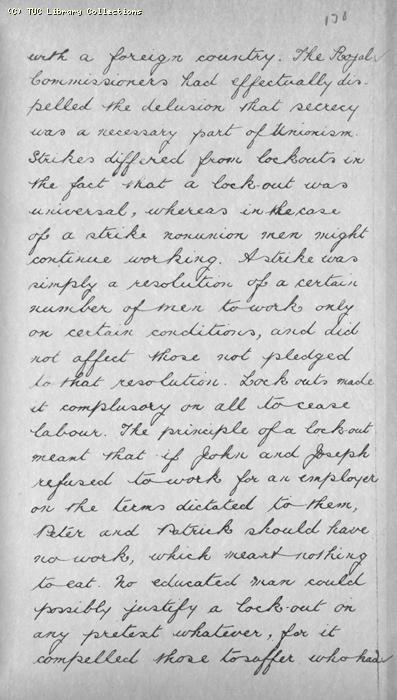 (C) TUC Library Collections
with a foreign country. The Royal
Commissioners had effectually dis-
pelled the delusion that secrecy
was a necessary part of Unionism.
Strikes differed from lockouts in
the fact that a lock-out was
universal, whereas in the case
of a strike nonunion men might
continue working. A strike was
simply a resolution of a certain
number of men to work only
on certain conditions, and did
not affect those not pledged
to that resolution. Lock outs made
it complusory on all to cease
labour. The principle of a lock-out
meant that if John and Joseph
refused to work for an employer
on the terms dictated to them,
Peter and Patrick should have
no work, which meant nothing
to eat. No educated man could
possibly justify a lock-out on
any pretext whatever, for it
compelled those to suffer who had